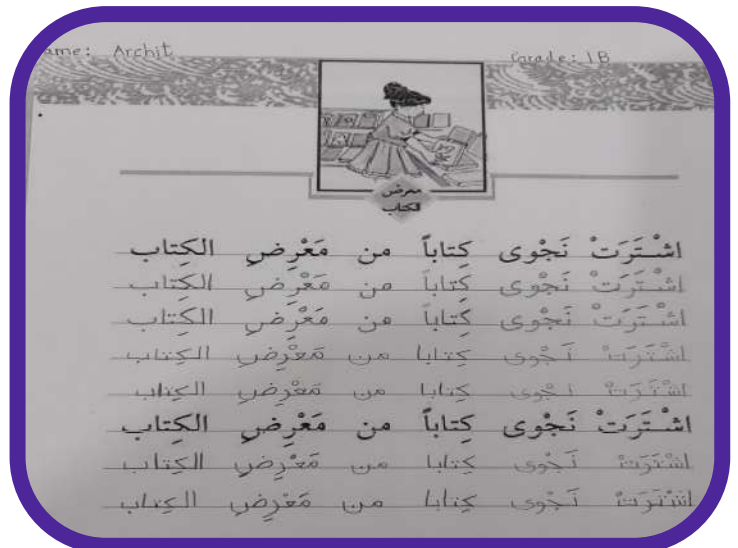 Name: Archit Grade: 1B
معرض
الكتاب
اشْتَرَتْ نَجْوى كِتاباً من مَعْرِضِ الكِتاب
اشْتَرَتْ نَجْوى كِتاباً من مَعْرِضِ الكِتاب
اشْتَرَتْ نَجْوى كِتاباً من مَعْرِضِ الكِتاب
اشْتَرَتْ نَجْوى كِتابا من مَعْرِضِ الكِتاب
اشْتَرَتْ نجوى كِتابا من مَعْرِضِ الكِتاب
اشْتَرَتْ نَجْوى كِتاباً من مَعْرِضِ الكِتاب
اشْتَرَتْ نَجْوى كِتابا من مَعْرِضِ الكِتاب
اشْتَرَتْ نَجْوى كِتابا من مَعْرِضِ الكِتاب